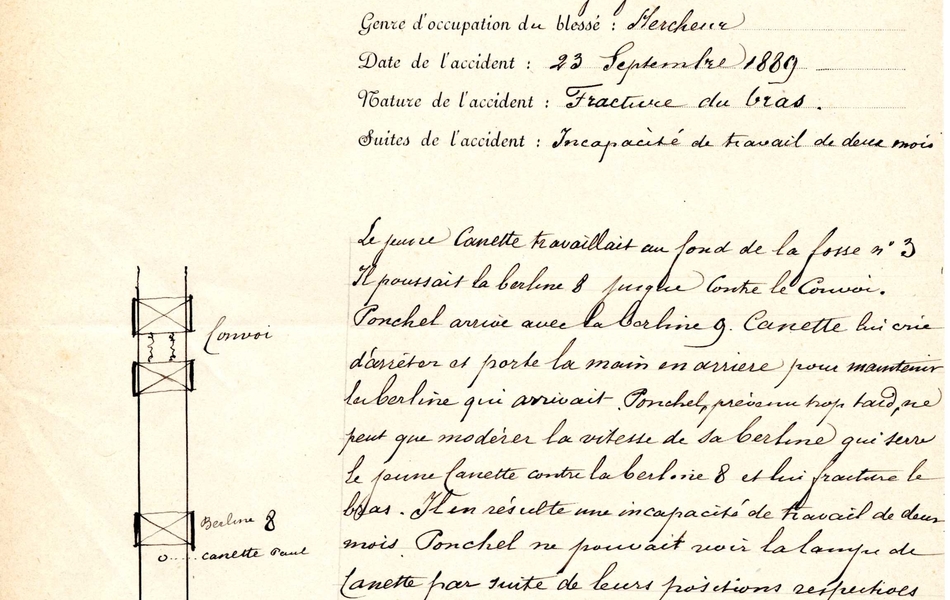 Genre d'occupation du blessé : Hercheur
Date de l'accident : 23 Septembre 1889
Nature de l'accident : Fracture du bras.
Suites de l'accident : Incapacité de travail de deux mois
Le jeune Canette travaillait au fond de la fosse n° 3
Il poussait la berline 8 jusque contre le Convoi.
Ponchel arrive avec la berline 9. Canette lui crie
d'arrêter et porte la main en arrière pour maintenir
la berline qui arrivait. Ponchel, prévenu trop tard, ne
peut que modérer la vitesse de sa berline qui serre
le jeune Canette contre la berline 8 et lui fracture le
bras. Il en résulte une incapacité de travail de deux
mois. Ponchel ne pouvait voir la lampe de
Canette par suite de leurs positions respectives
Convoi
Berline 8
o......canette Paul